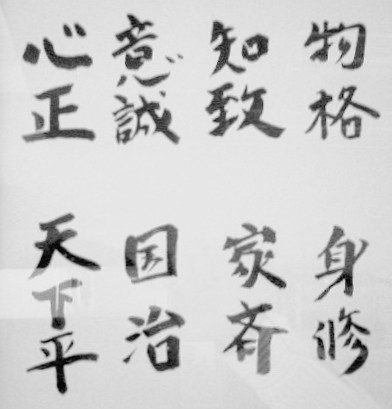 物格
知致
意誠
心正
身修
家斉
国治
天下平